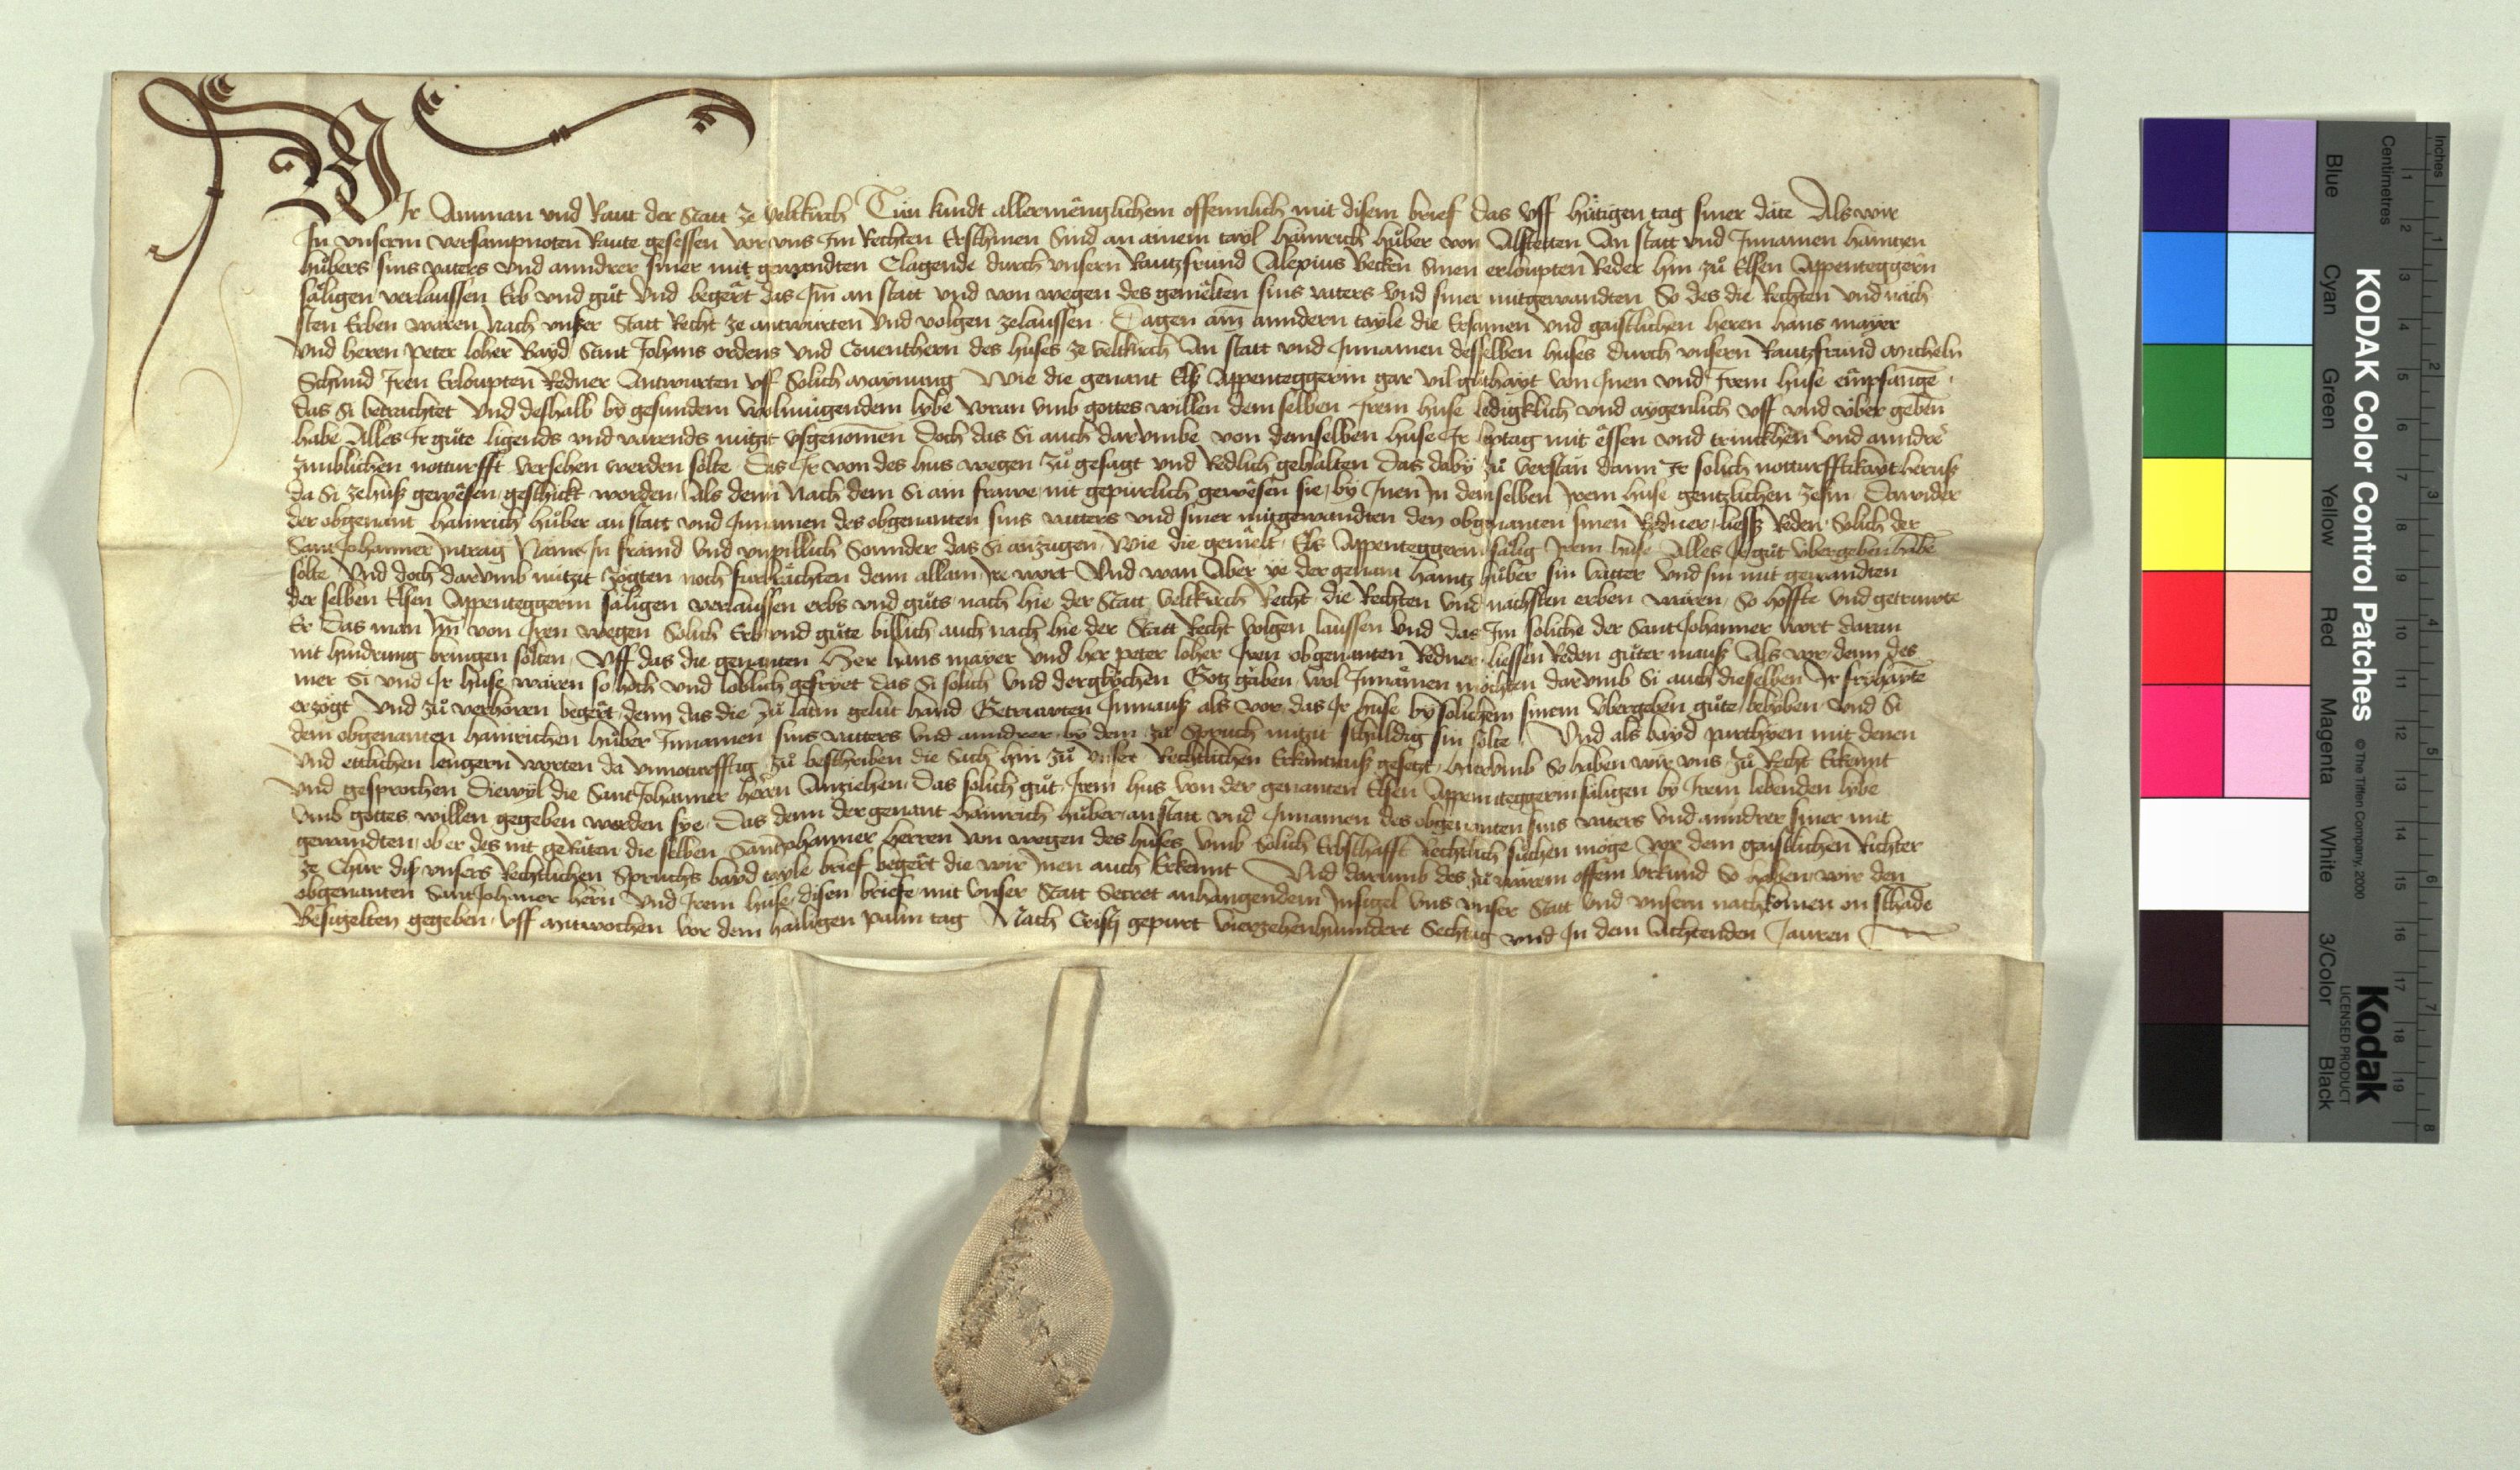 WIr Amman und Raut der Statt ze Veltkirch Tůn kundt allermênglichem offennlich mit disem brief das vff hütigen tag siner date Als wir
In vnserm versampnoten Raute gesessen vor vns Im Rechten Erschinen Sind an ainem tayl hainrich hůber von Alstetten An statt vnd Innamen haintzen
hůbers sins vaters vnd anndrer siner mit gewandten Clagende durch vnsern Rautzfrund Alexius Becken sinen erloupten Reder hin zů Elsen Appenteggerin
sâligen verlaussen Erb vnd gůt vnd begert das Im an statt vnd von wegen des gemelten sins vaters vnd siner mitgewandten So des die Rechten vnd nâch
sten Erben wâren Nach vnser Statt Recht ze antwurten vnd volgen zelaussen Dagen am anndern tayle die Ersamen vnd gaistlichen heren hans mayer
vnd herren peter loher Bayd Sant Johans ordens vnd Conuenthern des huses ze Veltkirch An statt vnd Innamen desselben huses durch vnsern Rautzfrund micheln
Schmid Iren Erloupten Redner Antwurten vff Solich maynung Wie die genant Els Appenteggerin gar vil gůthayt von Inen vnd Irem huse empfange
das Si betrachtet vnd deshalb by gesundem wolmügendem lybe voran vmb gottes willen dem selben Irem huse ledigklich vnd aygenlich vff vnd über geben
habe Alles Ir gůte ligends vnd varends nützit vsgenomen Doch das Si auch darvmbe von demselben huse Ir leptag mit êssen vnd trinckhen vnd anndre
zimblichen notturfft versehen werden sôlte Das Ir von des hus wegen zů gesagt vnd Redlich gehalten Das daby zů verstan dann Ir solich notturfftikayt herus
da Si zehus gewêsen geschickt worden Als denn Nach dem Si ain frawe nit gepürlich gewêsen sie by Inen In demselben Irem huse gentzlichen zesin Darwider
der obgenant hainrich hůber an statt vnd Innamen des obgenanten sins vatters vnd siner mitgewandten den obgenanten sinen Redner liess Reden Solich der
Sant Johanner Intrag Nâme In frâmd vnd vnpillich Sonnder das Si anzugen Wie die gemelt Els Appenteggerin sâlig Irem huse Alles Ir gůt übergeben habe
sôlte Vnd doch darvmb nützit zôgten noch fürbrâchten denn allain Ire wort Vnd wan Aber ye der genant haintz hůber sin vatter vnd sin mit gewandten
der selben Elsen Appenteggerin sâligen verlaussen erbs vnd gůts nach hie der Statt Veltkirch Recht die Rechten vnd nâchsten erben wâren So hoffte vnd getruwte
Er Das man Im von Iren wegen Solich Erb vnd gůte billich auch nach hie der Statt Recht volgen laussen vnd das Im soliche der Sant Johanner wort daran
nit hindrung bringen sôlten Vff das die genanten Her hans mayer vnd her peter loher Iren obgenanten Redner liessen Reden gůter mauss Als vor denn des
mer Si vnd Ir huse wâren so hôch vnd loblich gefryet das Si solich vnd derglychen Gotz gâben wol Innâmen mochten darvmb Si auch dieselben Ir fryhayte
erzôgt vnd zů verhôren begert denn das die zů latin gelut hand Getruwten Inmauss als vor das Ir huse by solichem sinem übergeben gůte belyben vnd Si
dem obgenanten hainrichen hůber Innamen sins vatters vnd anndrer by dem zů Spruch nützit schuldig sin sôlte Vnd als bayd parthyen mit denen
vnd ettlichen lengern worten da vnnotturfftig zů beschriben die Sach hin zů vnser Rechtlichen Erkantnuss gesetzt hierumb So haben wir vns zů Recht Erkennt
vnd gesprochen Diewyl die Sant Johanner herrn Anziehen Das solich gůt Irem hus von der genanten Elsen Appenteggerin sâligen by Irem lebenden lybe
vmb gottes willen gegeben worden sye Das denn der genant hainrich hůber an statt vnd Innamen des obgenanten sins vaters vnd anndrer siner mit
gewandten ob er des nit gerâten die selben Sant Johanner herren von wegen des huses vmb solich Erbschafft Rechtlich sůchen môge vor dem gaistlichen Richter
ze Chur dis vnsers Rechtlichen Spruchs bayd tayle brief begert die wir Inen auch Erkennt Vnd darumb des zů warem offem vrkund So haben wir den
obgenanten Sant Johaner hern vnd Irem huse disen briefe mit vnser Statt Secret anhangendem Insigel vns vnser Statt vnd vnsern nachkomen on schade
Besigelten gegeben vff mitwochen vor dem hailigen palm tag Nach Cristj gepurt vierzehenhunndert Sechtzig vnd In dem Achtenden Jauren
KODAK Color Control Patches © The Tiffen Company, 2000
Kodak
LICENSED PRODUCT
Blue Cyan Green Yellow Red Magenta White 3/Color Black
Inches 1 2 3 4 5 6 7 8
Centimetres 1 2 3 4 5 6 7 8 9 10 11 12 13 14 15 16 17 18 19